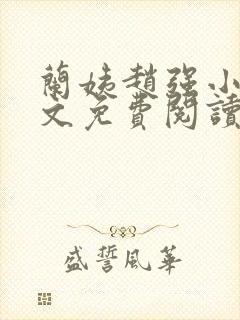 蘭姨趙强小
文免費閱讀
盛誓風華